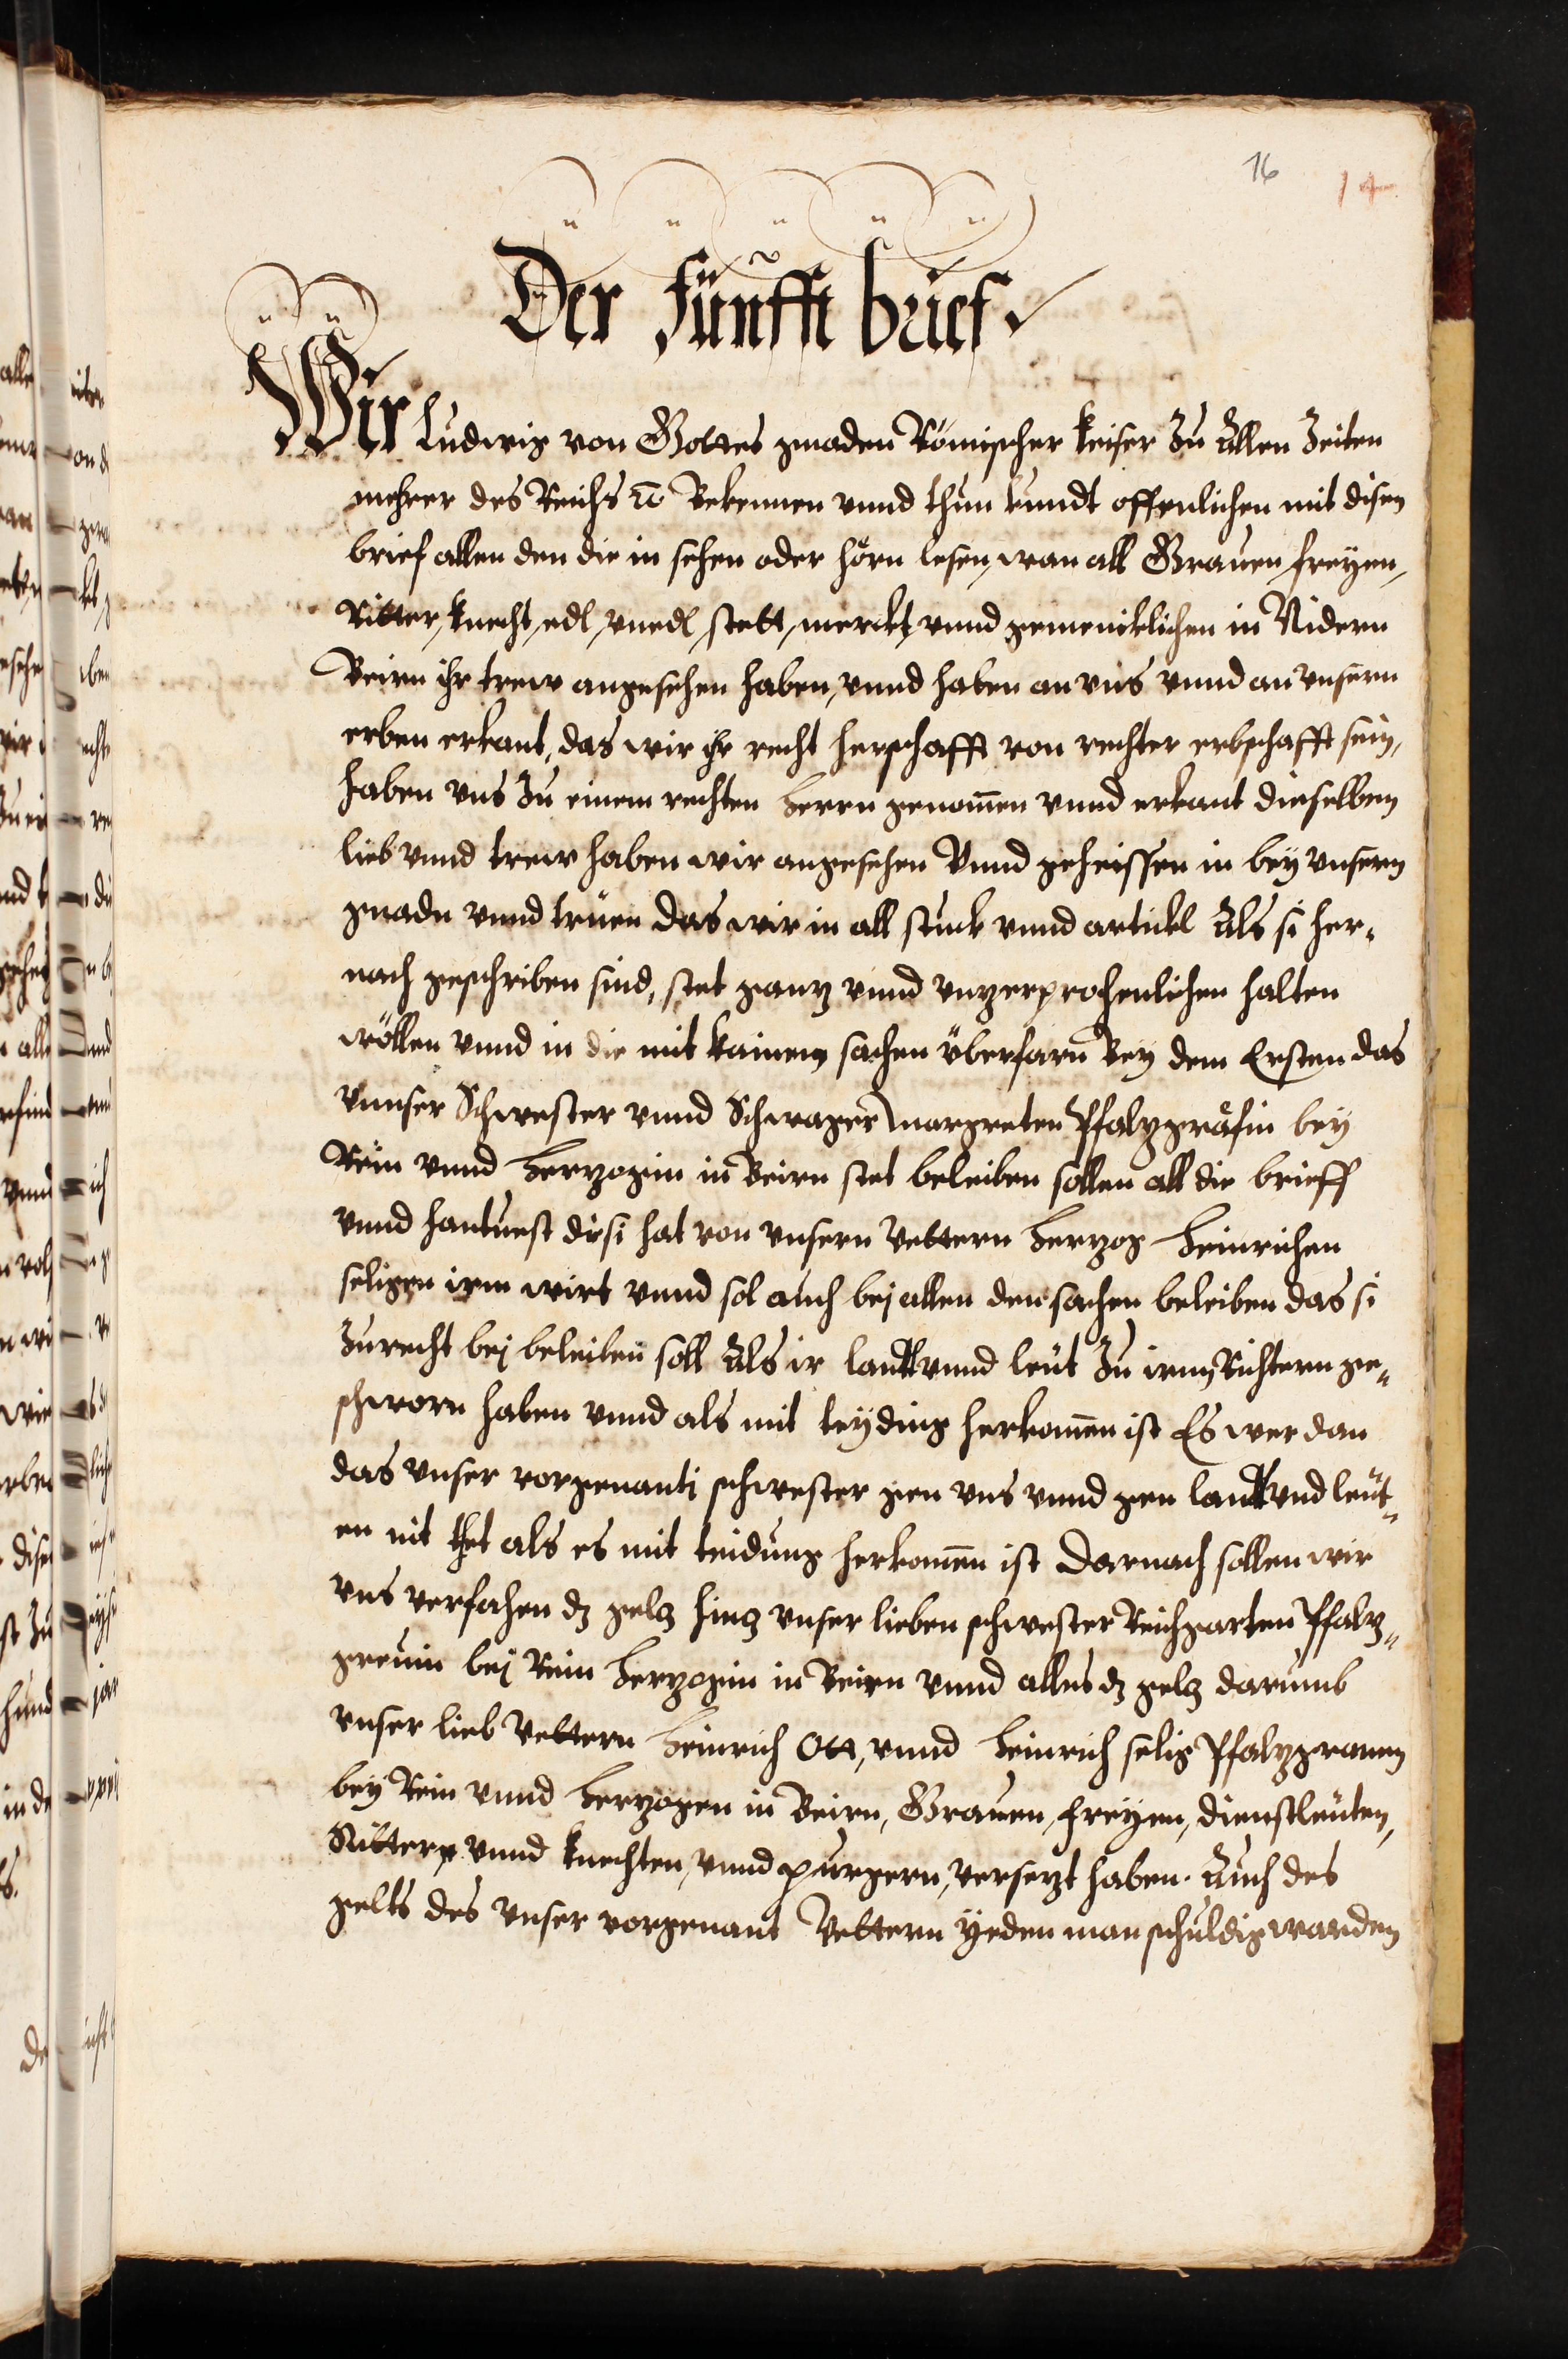 16 14
Der Fünfft brief
Wir Ludwig von Gottes gnaden Römischer keiser Zu Allen Zeiten
mehrer des Reichs etc Bekennen vnnd thun kundt offenlichen mit disen
brief allen den die in sehen oder hörn lesen, wan all Grauen, freyen,
Ritter, knecht, edl, vnedl, stett, merckt, vnnd gemeniklichen in Nidern
Beirn ihr trew angesehen haben, vnnd haben an vns vnnd an vnsern
erben erkant, das wir ihr recht herschafft von rechter erbschafft sein,
haben vns Zu einem rechten Herrn genom̄en vnnd erkant dieselben
lieb vnnd trew haben wir angesehen Vnnd geheissen in bey vnsern
gnadn vnnd trüen das wir in all stuck vnnd artickl Als si her-
nach geschriben sind, stet ganz vnnd vnzerprochenlichen halten
wöllen vnnd in die mit kainen sachen überfarn Bey dem Ersten das
Vnnser Schwester vnnd Schwager Margreten Pfalzgräfin bey
Rein vnnd Herzogin in Beirn stet beleiben sollen all die brieff
vnnd hantuest die si hat von vnsern Vettern Herzog Heinrichen
seligen irm wirt vnnd sol auch bej allen den sachen beleiben das si
Zurecht bej beleiben soll Als ir lantt vnnd leüt Zu irm Richtern ge-
schworn haben vnnd als mit teyding herkom̄en ist Es wer dan
das vnser vorgenanti schwester gen vns vnnd gen lantt vnd leüt-
en nit thet als es mit teidung herkom̄en ist Darnach sollen wir
vns verfahen dz gelz hinz vnser lieben schwester Reichgarten Pfalz-
greuin bej Rein Herzogin in Beirn vnnd alles dz gelz darumb
vnser lieb Vettern Heinrich Ott, vnnd Heinrich selig Pfalzgrauen
bey Rein vnnd Herzogen in Beirn, Grauen, freyen, dienstleuten,
Rittern vnnd knechten, vnnd purgern, versezt haben. Auch des
gelts des vnser vorgenant Vettern yeden man schuldig warden